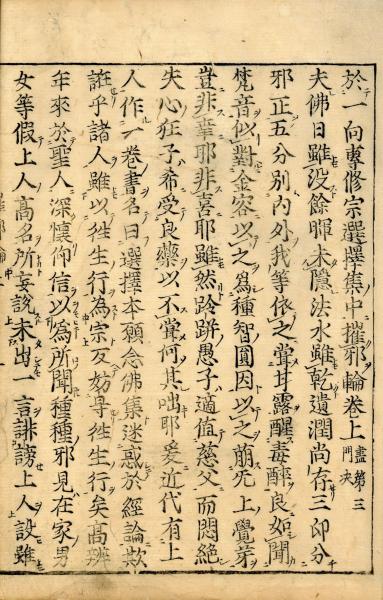 於一向專修宗選擇集中摧邪輪卷上盡第三門决
夫佛日雖没餘暉未隱法水雖乾遺潤尚存三印分
邪正五分別内外我等依之甞甘露醒毒醉良如聞
梵音似對金容以之爲種智圓因以之萠无上覺芽
豈非幸耶非喜耶雖然跉跰愚子適値慈父而悶絶
失心狂子希受良藥以不甞何其咄耶爰近代有上
人作一卷書名曰選擇本願念佛集迷惑於經論欺
誑乎諸人雖以徃生行為宗反妨㝵徃生行矣高辨
年來於聖人深懷仰信以為所聞種種邪見在家男
女等假上人高名所妄説未出一言誹謗上人設雖